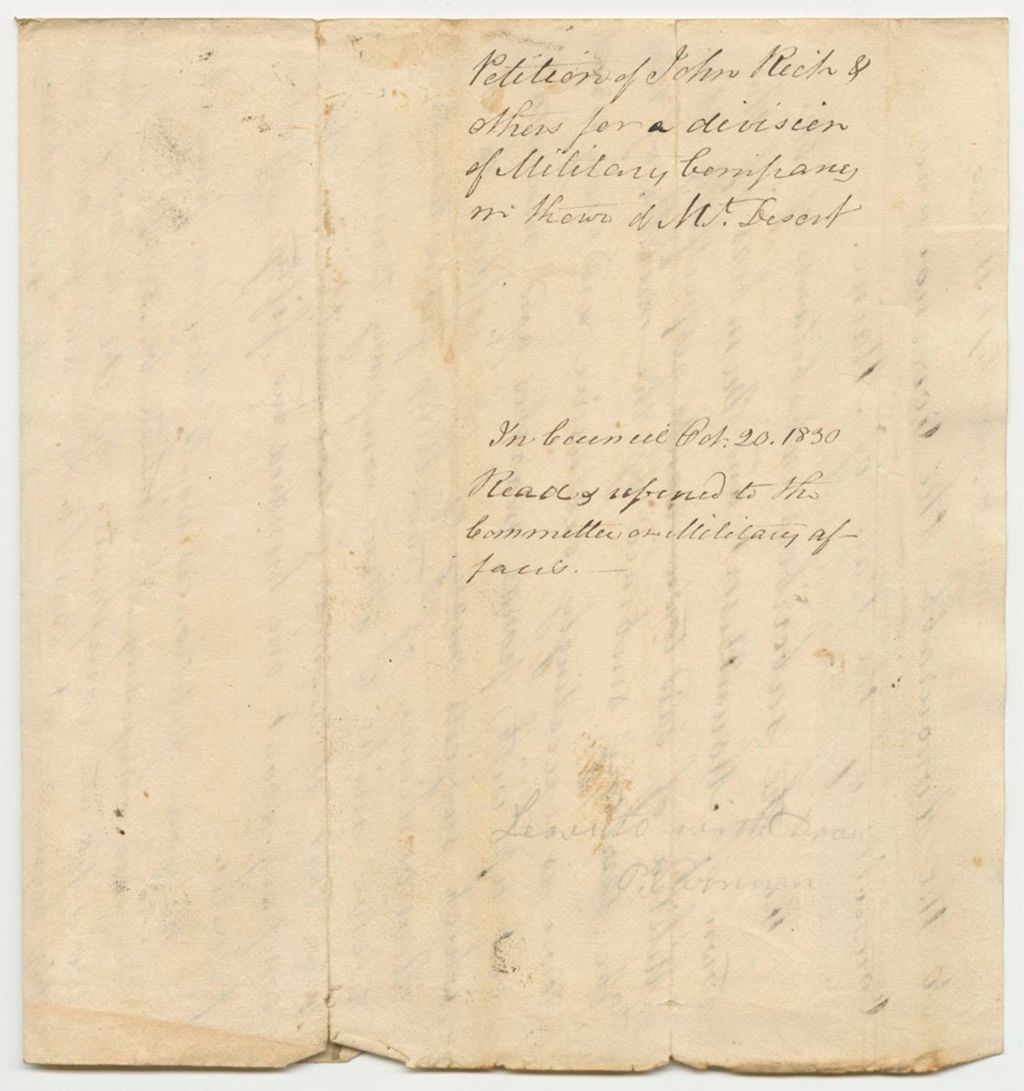 Petition of John Rich &
others for a division
of Military Company
in the town of Mt. Desert
In Council Oct. 20. 1830
Read & referred to the
Committee on Military af-
fairs. —
Leave to withdraw